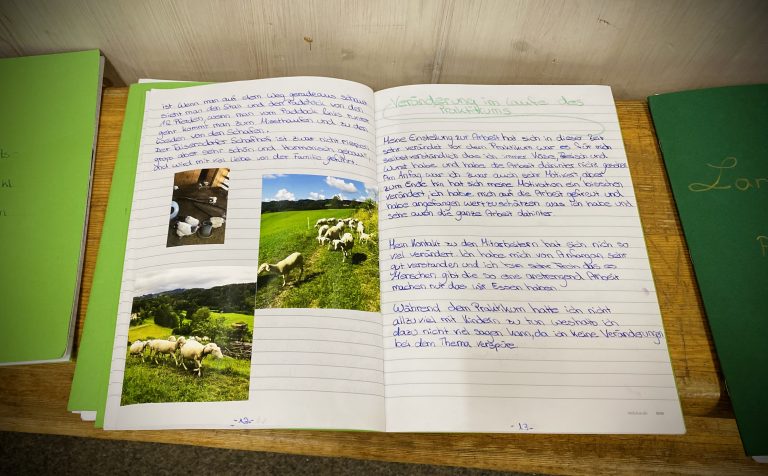 ist. Wenn man auf dem Weg geradeaus schaut
sieht man den Stall und den Paddock von den
Pferden, wenn man vom Paddock links runter
geht kommt man zum Misthaufen und zu den
Weiden von den Schafen.
Der Tausendorfer Schafhof ist zwar nicht
groß aber sehr schön und harmonisch gebaut,
und wird mit viel Liebe von der Familie geführt.
-12-
Veränderung im Laufe des
Praktikums
Meine Einstellung zur Arbeit hat sich in dieser Zeit
sehr verändert. Vor dem Praktikum war es für mich
selbstverständlich dass ich immer Käse, Fleisch und
Wurst habe und habe die Arbeit dahinter nicht gesehen.
Am Anfang war ich zwar auch sehr Motiviert aber
zum Ende hin hat sich meine Motivation ein bisschen
verändert, ich habe mich auf die Arbeit gefreut und
habe angefangen wert zu schätzen was ich habe und
sehe auch die ganze Arbeit dahinter.
Mein Kontakt zu den Mitarbeitern hat sich nich so
viel verändert. Ich habe mich von Anfang an sehr
gut verstanden und ich bin sehr Froh das es
Menschen gibt die so eine anstrengend Arbeit
machen nur das wir Essen haben.
Während dem Praktikum hatte ich nicht
allzu viel mit Kindern zu tun weshalb ich
dazu nicht viel sagen kann, da ich keine Veränderungen
bei dem Thema verspüre.
-13-